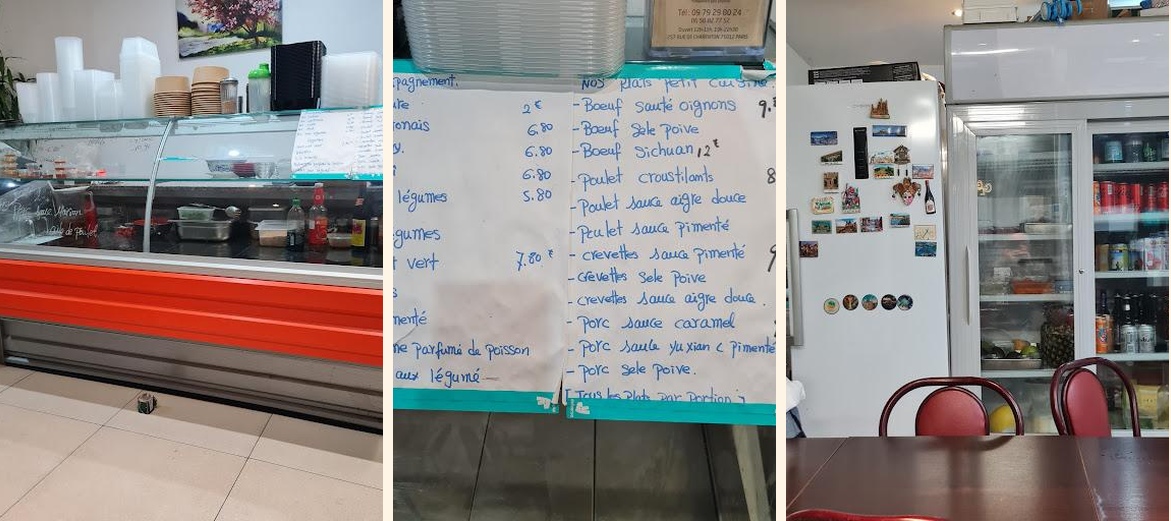 Tél: 09 79 29 80 24
06 56 82 77 52
257 RUE DE CHARENTON 75012 PARIS
pagnement.
2€
onais 6.80
6.80
6.80
légumes 5.80
gumes
vert 7.80 €
menté
ne parfumé de poisson
aux légumé
Nos plats petit cuisine.
- Boeuf sauté oignons 9.
- Boeuf Sele Poive
- Boeuf Sichuan 12€
- Poulet croustilants 8
- Poulet sauce aigre douce
- Poulet sauce pimenté
- crevettes sauce pimenté 9
- crevettes Sele Poive
- crevettes sauce aigre douce.
- Porc sauce caramel
- Porc saute yuxian < Pimenté
- Porc Sele Poive.
Tous les Plats Par Portion